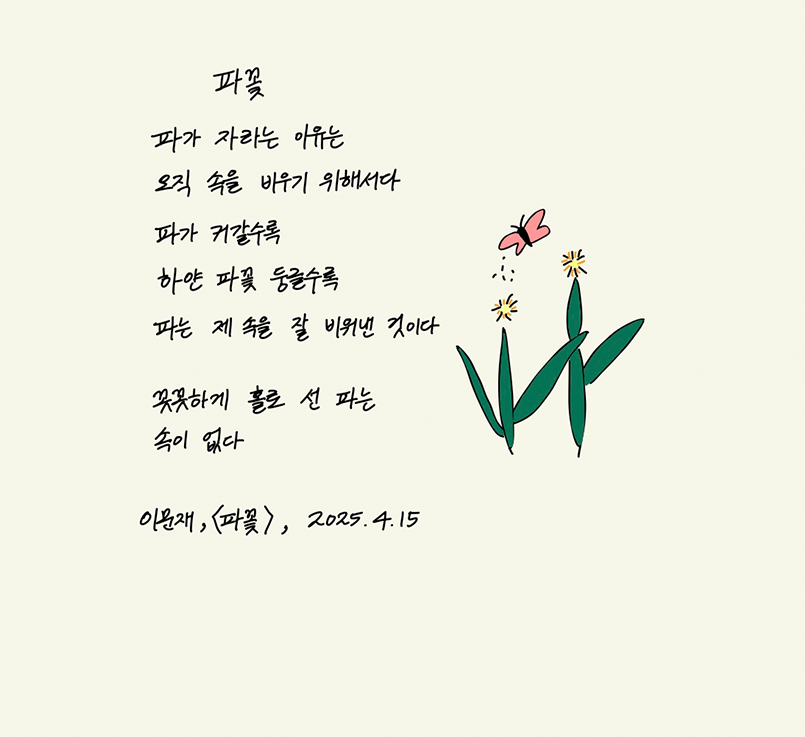 파꽃
파가 자라는 이유는
오직 속을 비우기 위해서다
파가 커갈수록
하얀 파꽃 둥글수록
파는 제 속을 잘 비워낸 것이다
꼿꼿하게 홀로 선 파는
속이 없다
이문재, <파꽃>, 2025.4.15